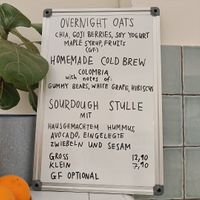 OVERNIGHT OATS
CHIA, GOJI BERRIES, SOY YOGURT
MAPLE SYRUP, FRUITS
(GF)
HOMEMADE COLD BREW
COLOMBIA
with notes of:
GUMMY BEARS, WHITE GRAPE, HIBISCUS
SOURDOUGH STULLE
MIT
HAUSGEMACHTEM HUMMUS,
AVOCADO, EINGELEGTE
ZWIEBELN UND SESAM
GROSS 12,90
KLEIN 7,90
GF OPTIONAL